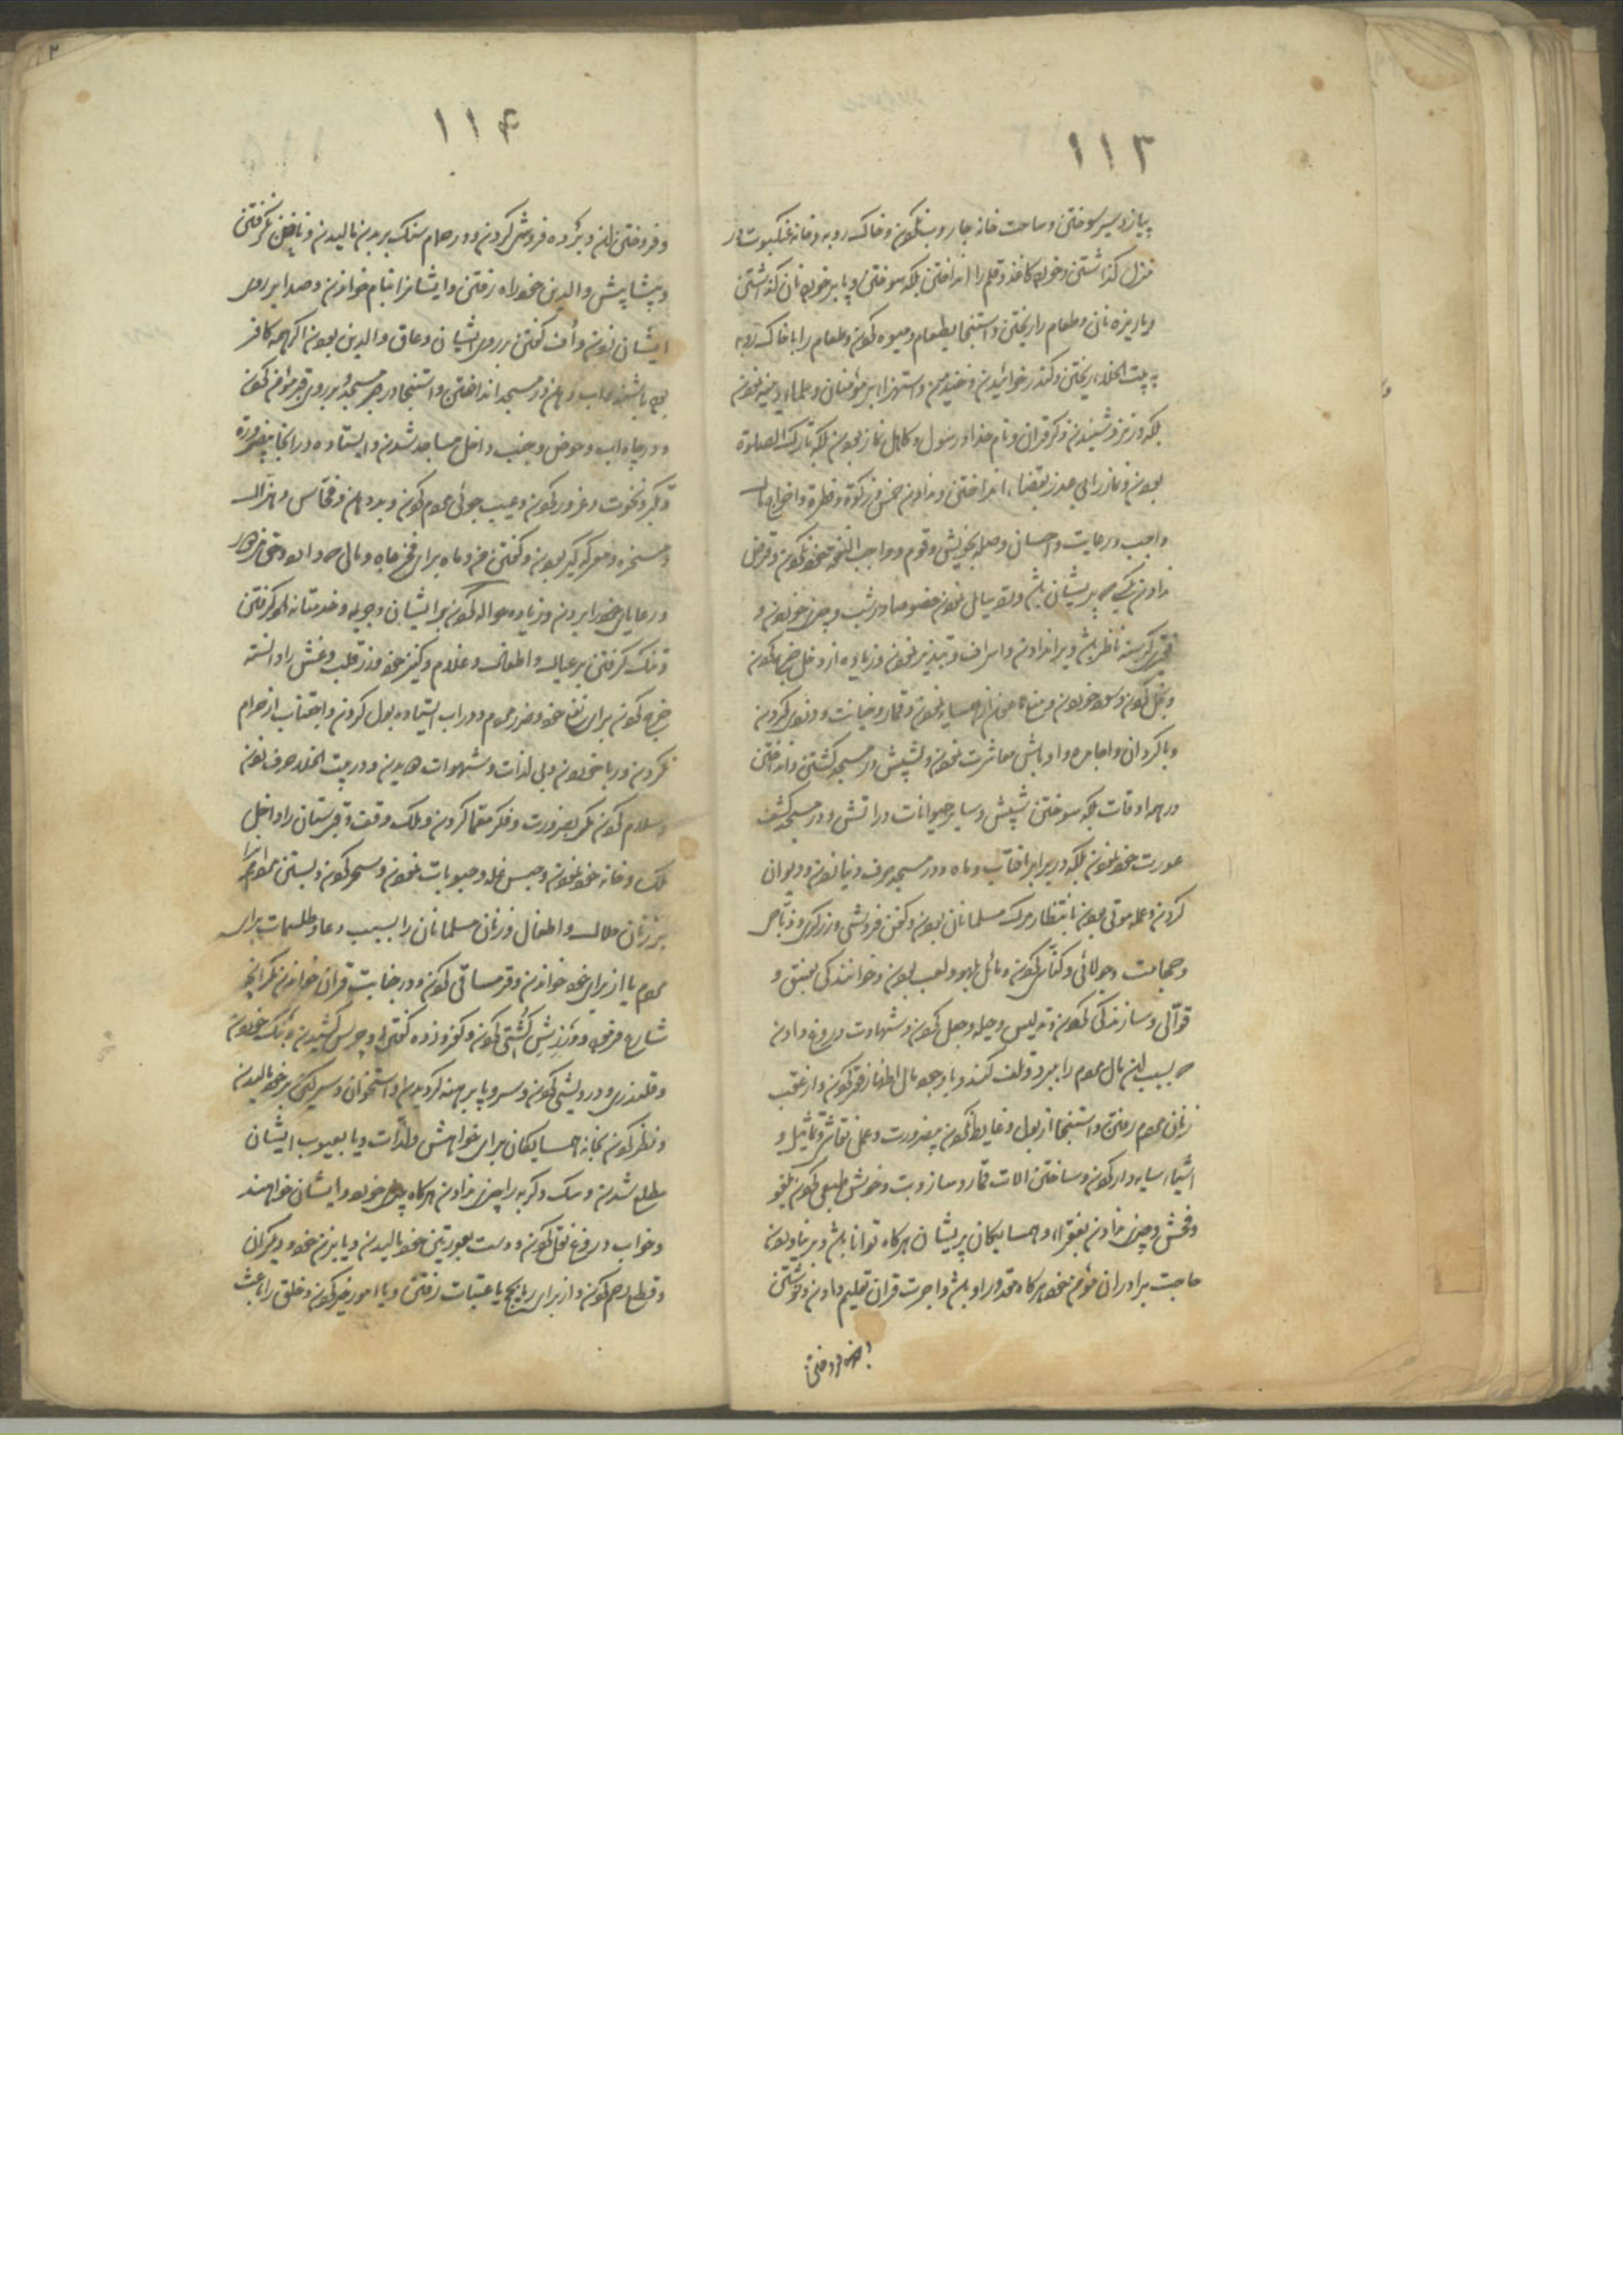 ۱۱۳
پیاز و سیر سوختن و ساحت خانه جاروب نکردن و خاک روبه و خانه عنکبوت در
منزل گذاشتن و خورده کاغذ و قلم را انداختن بلکه سوختن و پا بر خورده نان گذاشتن
و با ریزه نان و طعام را ریختن و استنجا بطعام و میوه کردن و طعام را با خاک روبه
به بیت الخلاء ریختن و کندر خوائیدن و خندیدن و استهزاء بر مؤمنان و علماء دینیه نمودن
بلکه در نزد شنیدن ذکر قران و نام خدا و رسول و کاهل نماز بودن بلکه تارک الصلوة
بودن و نماز را بی عذر بقضاء انداختن و ندادن خمس و زکوة و فطره و اخراجات
واجب و رعایت و احسان و صله بخویش و قوم و واجب النفقه خود نکردن و قرض
ندادن بکسی که پریشان باشد و تو سایل نمودن خصوصا در شب و چیزی خوردن و
فقیر گرسنه ناظر باشد و بر او ندادن و اسراف و تبذیر نمودن و زیاده از دخل خرج کردن
و بخل کردن و سود خوردن و منع ماعون از همسایه نمودن و قمار و خیانت و دزدی کردن
و با کردان و اجامره و اوباش معاشرت نمودن و شپش در مسجد کشتن و انداختن
در همه اوقات بلکه سوختن شپش و سایر حیوانات در اتش و در مسجد کشف
عورت خود نمودن بلکه در برابر افتاب و ماه و در مسجد حرف دنیا زدن و دیوانی
کردن و عمله موتی بودن بانتظار مرگ مسلمانان بودن و کفن فروشی و زرگری و ذباحی
و حجامت و جولائی و کناسی کردن و مائل بلهو و لعب بودن و خوانندگی بفسق و
قوالی و سازندگی کردن و تدلیس و حیله و جعل کردن و شهادت دروغ دادن
که بسبب ان مال مردم را ببرد و تلف کند و با وجود مال اظهار فقر کردن و از عقب
زنان مردم رفتن و استنجا از بول و غایط نکردن بیضرورت و عمل نقاشی و تماثیل و
اشیاء سایه دار کردن و ساختن الات قمار و ساز و بت و خوش طبعی کردن بلغو
و فحش و چیزی ندادن بفقراء و همسایگان پریشان هرگاه توانا باشد و بر نیاوردن
حاجت برادران مؤمن خود هرگاه مقدور او باشد و اجرت قران تعلیم دادن و نوشتن
و فروختن
۱۱۴
و فروختن ان و برده فروشی کردن و در حمام سنگ بر بدن مالیدن و ناخن نگرفتن
و پیشاپیش والدین خود راه رفتن و ایشانرا بنام خواندن و صدا بر روی
ایشان زدن و اف گفتن بر روی ایشان و عاق والدین بودن اگر چه کافر
بوده باشند و اب دهن در مسجد انداختن و استنجا در مسجد و بر روی قبر مؤمن کردن
و در چاه اب و حوض و جنب داخل مساجد شدن و ایستاده در انجا بیضرورة
و تکبر و نخوت و غرور کردن و عیب جوئی مردم کردن و بد دهن و فحاش و هزال
و مسخره و معرکه گیر بودن و گفتن من و ما برای فخر جاه و مال و
و رعایای خود را بردن و زیاده حواله کردن بر ایشان و جریمه و خدمتانه گرفتن
و تنگ گرفتن بر عیال و اطفال و غلام و کنیز خود و زر قلب و غش را دانسته
خرج کردن برای نفع خود و ضرر مردم و در اب ایستاده بول کردن و اجتناب از حرام
نکردن و ربا خوردن و بی لذات و شهوات دویدن و در بیت الخلا حرف زدن
و سلام کردن مگر بضرورت و فکر کردن و ملک وقف و قبرستان را داخل
ملک و خانه خود نمودن و حبس غله و حبوبات نمودن و سحر کردن و بستن مردم را
بر زنان حلال و اطفال و زنان مسلمانان را بسبب دعا و طلسمات برای
مردم یا از برای خود خواندن و قرمساقی کردن و در جنابت قران خواندن مگر انچه
شارع فرموده و ورزش کشتی کردن و کفر و زده گفتن و چرس کشیدن و بنگ خوردن
و قلندری و درویشی کردن و سر و پا برهنه گردیدن و استخوان و سرگین بر خود مالیدن
و نظر کردن بخانه همسایگان برای خواهش و لذات و یا بعیوب ایشان
مطلع شدن و سگ و گربه را چیزی ندادن هرگاه چیزی خورد و ایشان خواهند
و خواب دروغ نقل کردن و دست بعورتین خود مالیدن و یا بزن خود و دیگران
و قطع رحم کردن و از برای ریا بحج یا عتبات رفتن و یا امور خیر کردن و خلق را باعث